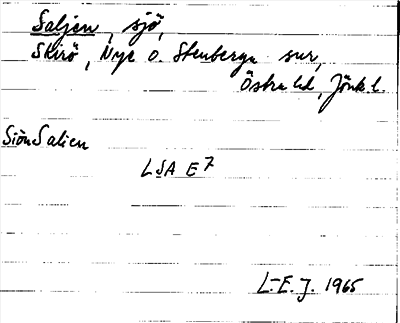 Saljen, sjö,
Skirö, Nye o. Stenberga snr,
Östra hd, Jönk.l.
Siön Salien
LSA E7
L-E.J. 1965